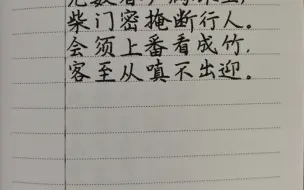 无数春笋满林生,
柴门密掩断行人。
会须上番看成竹,
客至从嗔不出迎。